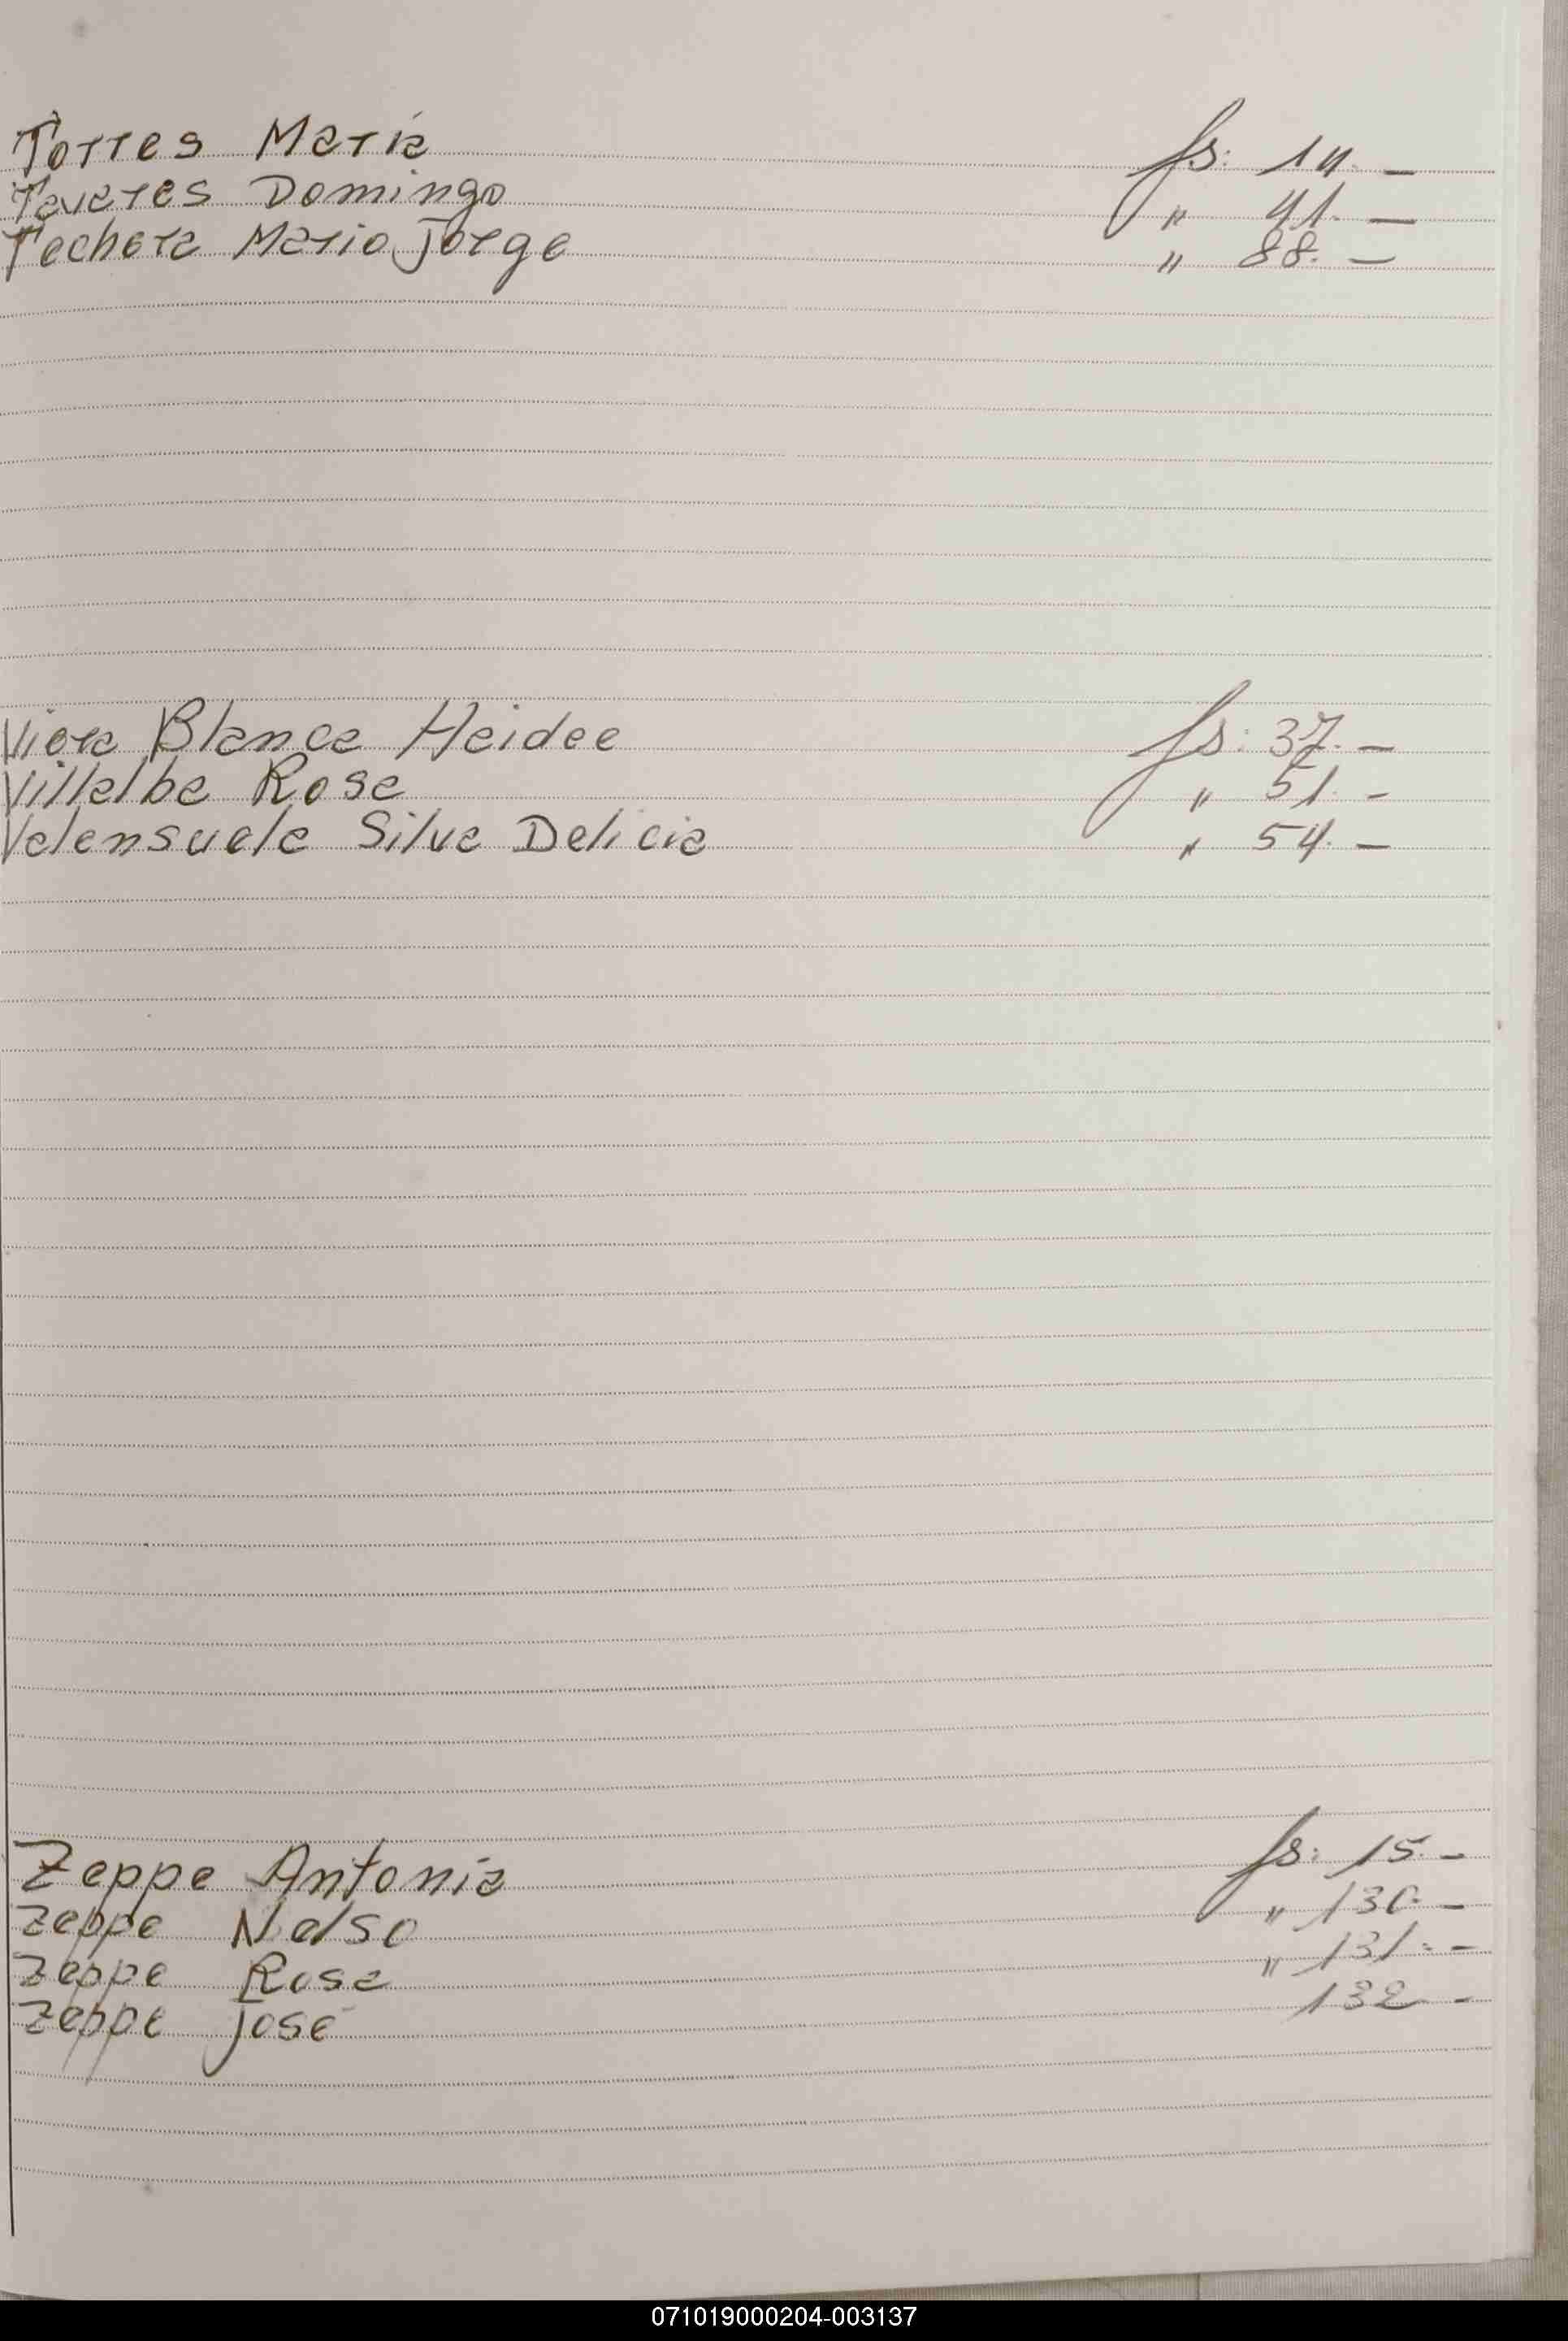 Torres Maria fs: 14. —
Tavares Domingo " 41. —
Techera Mario Jorge " 88. —
Viera Blanca Heidee fs: 37. —
Villalba Rosa " 51. —
Valensuela Silva Delicia " 54. —
Zeppe Antonia fs: 15. —
Zeppe Nelso " 130. —
Zeppe Rosa " 131. —
Zeppe José 132 —
071019000204-003137